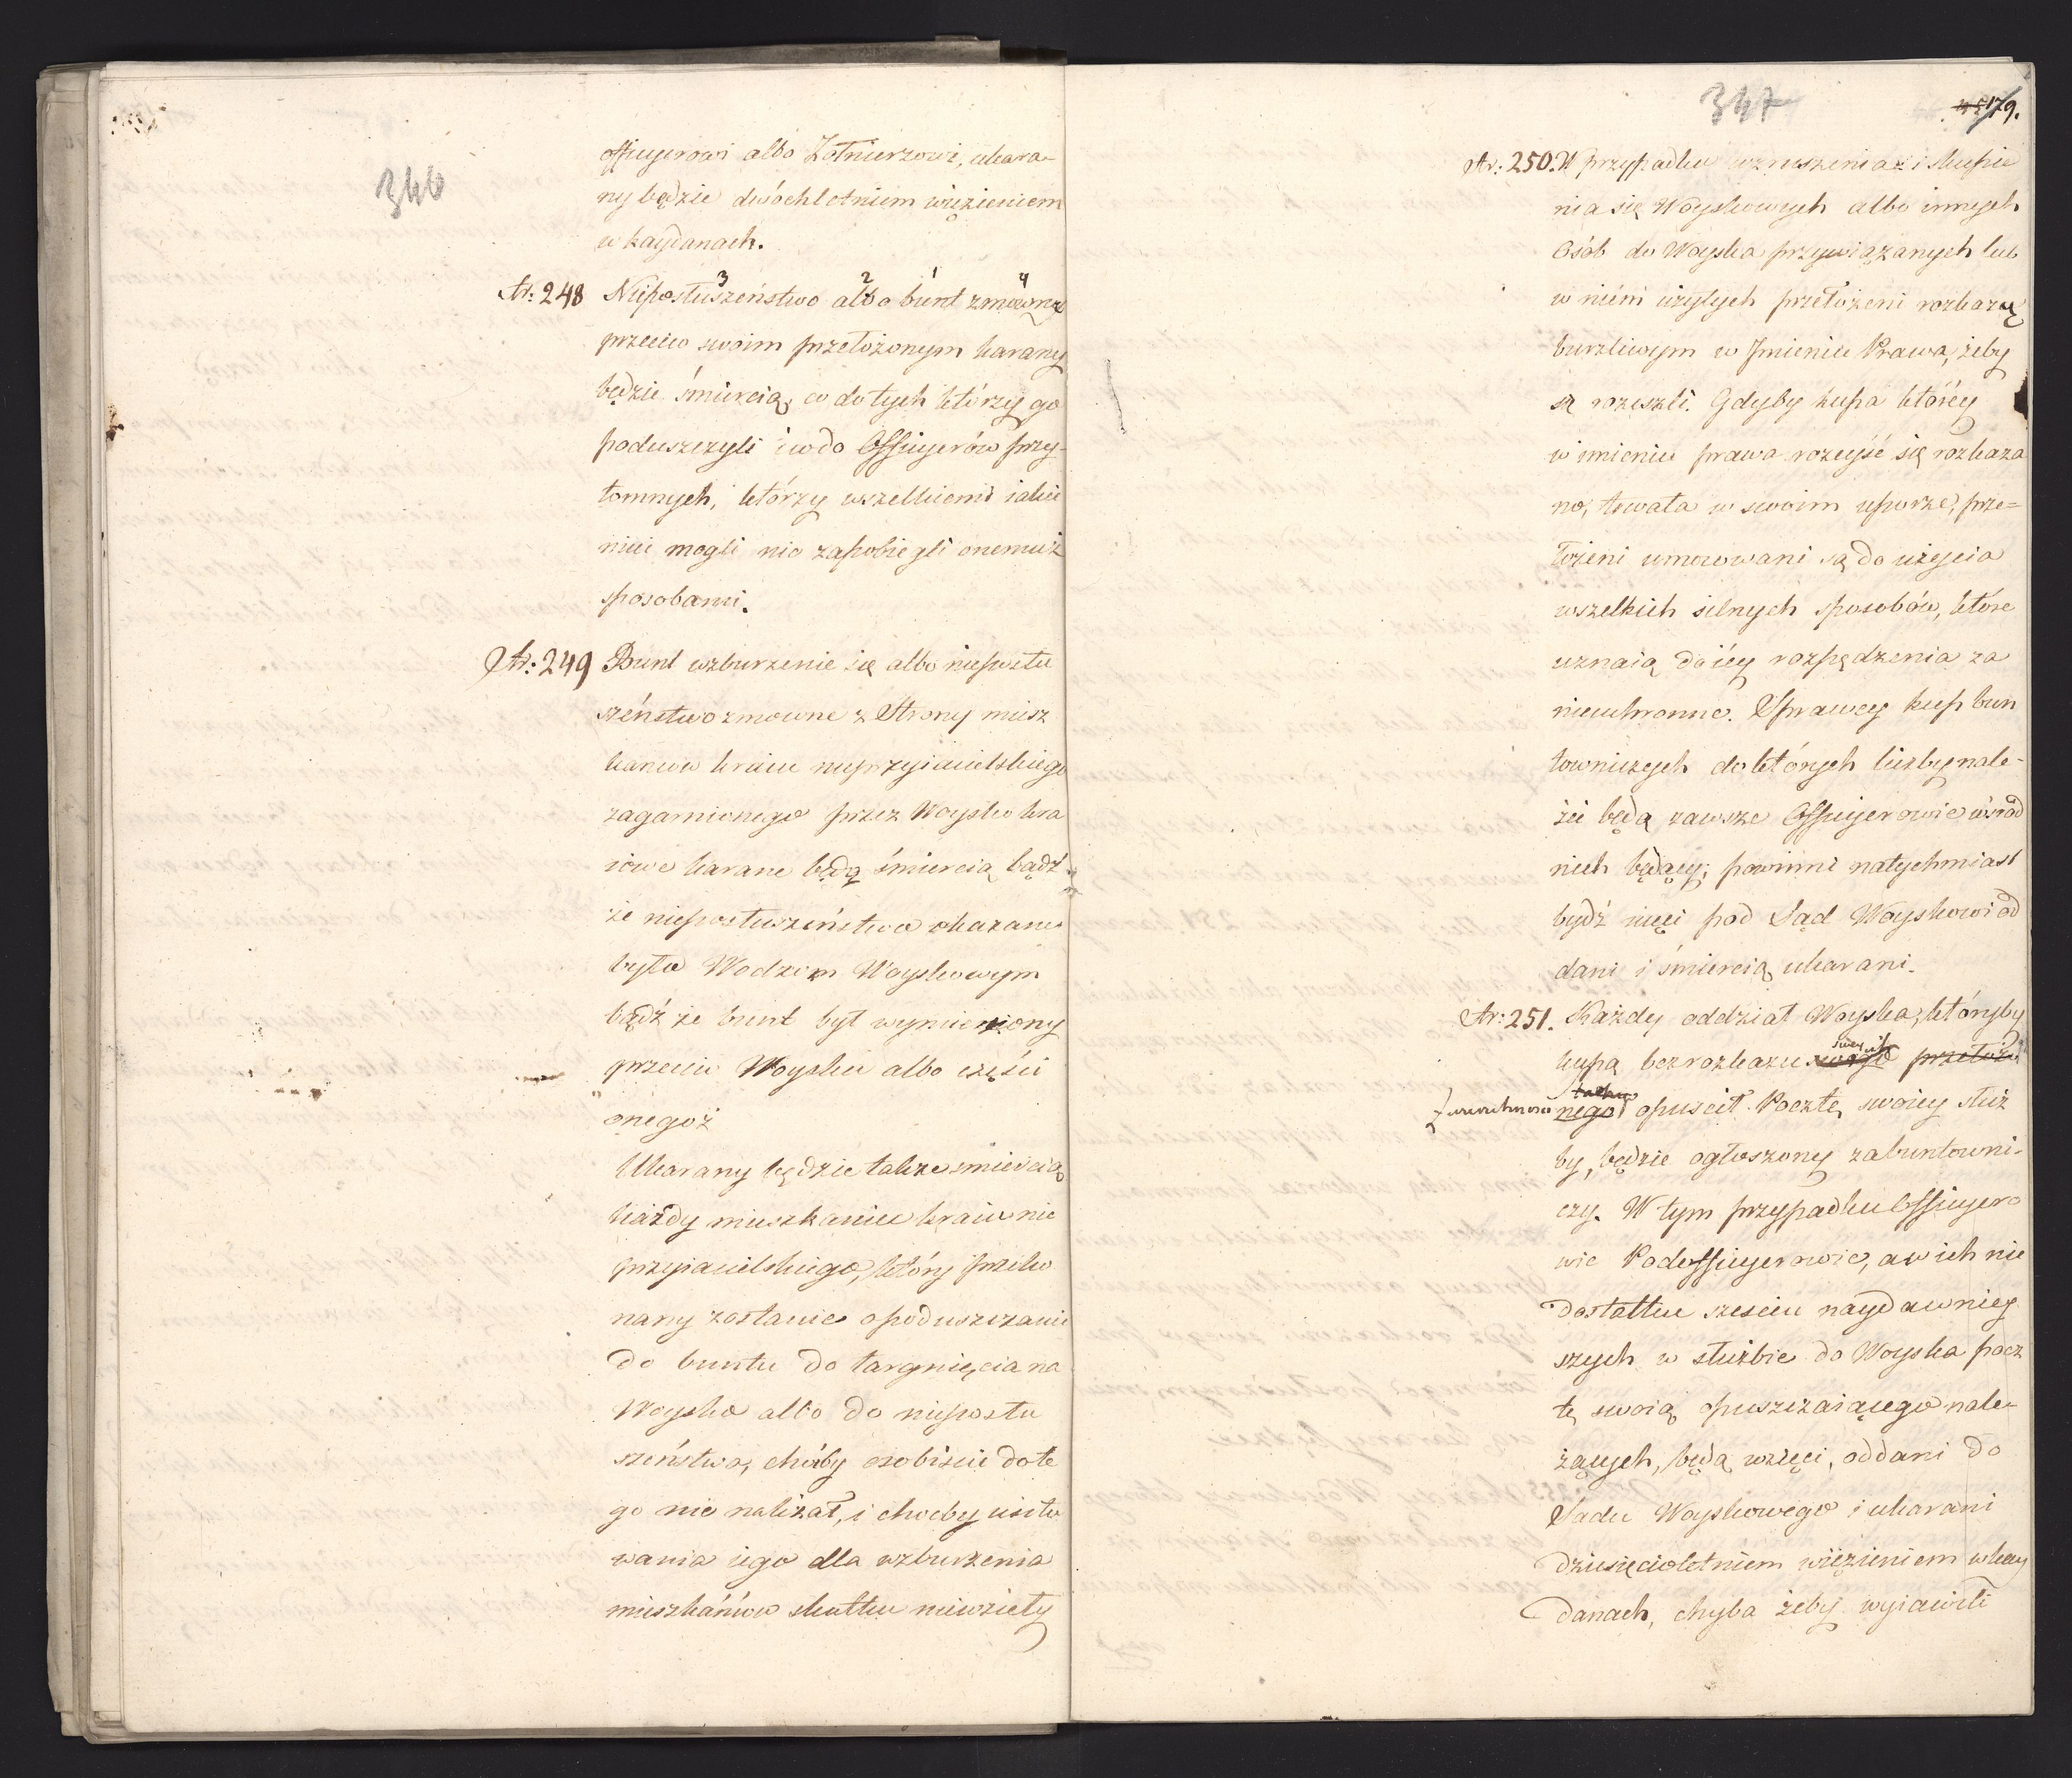 346
officyerowi albo Żołnierzowi, ukara-
ny będzie dwóchletnim więzieniem
w kaydanach.
3 2 1 4
Ar: 248 Nieposłuszeństwo albo bunt zmówne
przeciw swoim przełożonym karany
będzie śmiercią, co do tych którzy go
poduszczyli i co do Officyerów przy-
tomnych, którzy wszelkiemi iakie
mieć mogli nie zapobiegli onemuż
sposobami.
Ar: 249 Bunt wzburzenie się albo nieposłu
szeństwo zmowne z Strony miesz
kańców kraiu nieprzyiacielskiego
zagarnionego przez Woysko kra
iowe karane będą śmiercią bądź
że nieposłuszeństwo okazane
było Wodzom Woyskowym
bądź że bunt był wymierzony
przeciw Woysku albo części
onegoż
Ukarany będzie także śmiercią
każdy mieszkaniec kraiu nie
przyiacielskiego, który przeko
nany zostanie o poduszczanie
do buntu do targnięcia na
Woysko albo do nieposłu
szeństwa, choćby osobiście do te
go nie należał, i choćby usiło
wania iego dla wzburzenia
mieszkańców skutku niewzięły
347
179.
Ar: 250. W przypadku wzruszenia i skupie
nia się Woyskowych albo innych
Osób do Woyska przywiązanych lub
w niém użytych przełożeni rozkażą
burzliwym w Imieniu Prawa, żeby
się rozeszli. Gdyby kupa któréy
w imieniu prawa rozeyść się rozkaza
no, trwała w swoim uporze, prze=
łożeni umocowani są do użycia
wszelkich silnych sposobów, które
uznaią do iéy rozpędzenia za
nieuchronne. Sprawcy kup bun
towniczych do których liczby nale-
żeć będą zawsze Officyerowie wśród
nich będący; powinni natychmiast
bydź ujęci pod Sąd Woyskowi od
dani i śmiercią ukarani.
Ar: 251. Każdy oddział Woyska, któryby
swey
kupą bez rozkazu swego przełożo
zwierzchność nego opuścił Pocztę swoiey służ
by, będzie ogłoszony za buntowni-
czy. W tym przypadku Officyero
wie Podofficyerowie, a w ich nie
dostatku sześciu naydawniey
szych w służbie do Woyska pocz
tę swoią opuszczaiącego nale-
żących, będą wzięci, oddani do
Sądu Woyskowego i ukarani
dziesięcioletniem więzieniem w kay
danach, chyba żeby wyiawili